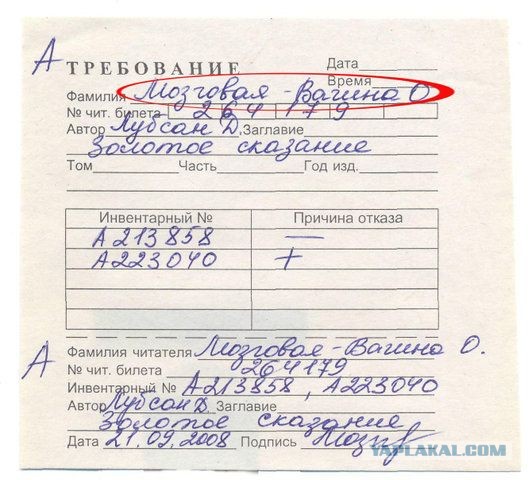 А ТРЕБОВАНИЕ Дата
Время
Фамилия Мозговая-Вагина О.
№ чит. билета 264179
Автор Лубсан Д. Заглавие
Золотое сказание
Том Часть Год изд.
Инвентарный № Причина отказа
А213858 —
А223040 +
А Фамилия читателя Мозговая-Вагина О.
№ чит. билета 264179
Инвентарный № А213858, А223040
Автор Лубсан Д. Заглавие
Золотое сказание
Дата 21.09.2008 Подпись
YAPLAKAL.COM